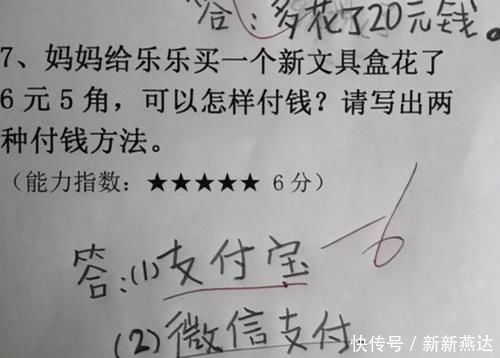 答：多花了20元钱。
7、妈妈给乐乐买一个新文具盒花了
6元5角，可以怎样付钱？请写出两
种付钱方法。
（能力指数：★★★★★ 6分）
答：(1)支付宝 -6
(2)微信支付
快传号／新新燕达